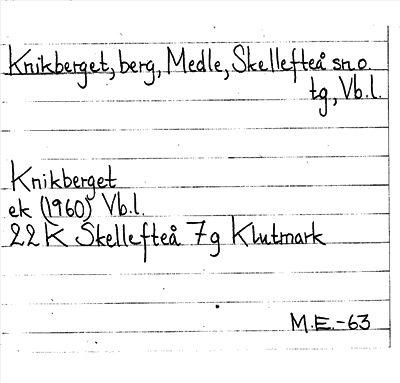 Knikberget, berg, Medle, Skellefteå sn o.
tg, Vb.l.
Knikberget
ek (1960) Vb.l.
22 K Skellefteå 7g Klutmark
M.E.-63